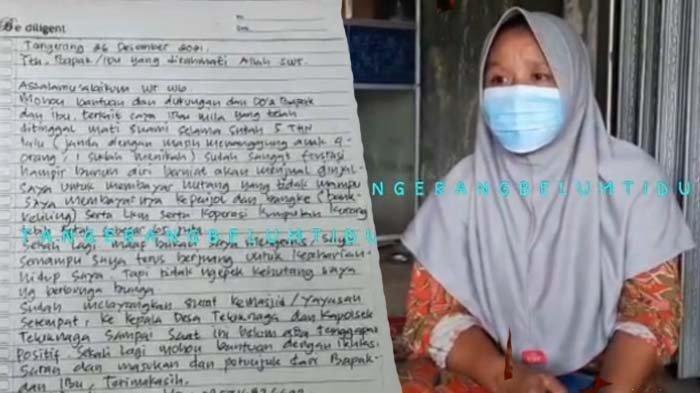 Be diligent
No.
Date.
Tangerang 26 Desember 2021.
Yth. Bapak/Ibu yang dirahmati Allah SWT.
Assalamu'alaikum wr wb
Mohon bantuan dan dukungan dan Do'a Bapak
dan ibu, terkait saya Ibu Nila yang telah
ditinggal mati suami selama sudah 5 THN
lalu (janda dengan masih menanggung anak 4
orang, 1 sudah menikah) sudah sangat
hampir bunuh diri berniat akan menjual ginjal
saya untuk membayar hutang yang tidak mampu
saya membayarnya kepinjol dan bangke (bank
keliling) serta LKM serta koperasi
TANGERANGBELUMTIDU
NGERANGBELUMTIDU
Sekali lagi, maaf bukan saya mengemis, saya
semampu saya terus berjuang untuk
hidup saya, Tapi tidak ngepek kehutang saya
yg berbunga bunga
Sudah melayangkan surat kemasjid/yayasan
Setempat, ke kepala Desa Teluknaga dan Kapolsek
Teluknaga sampai saat ini belum ada tanggapan
Positif. Sekali lagi mohon bantuan dengan ikhlas
Saran dan masukan dan petunjuk dari Bapak
dan Ibu, Terimakasih.